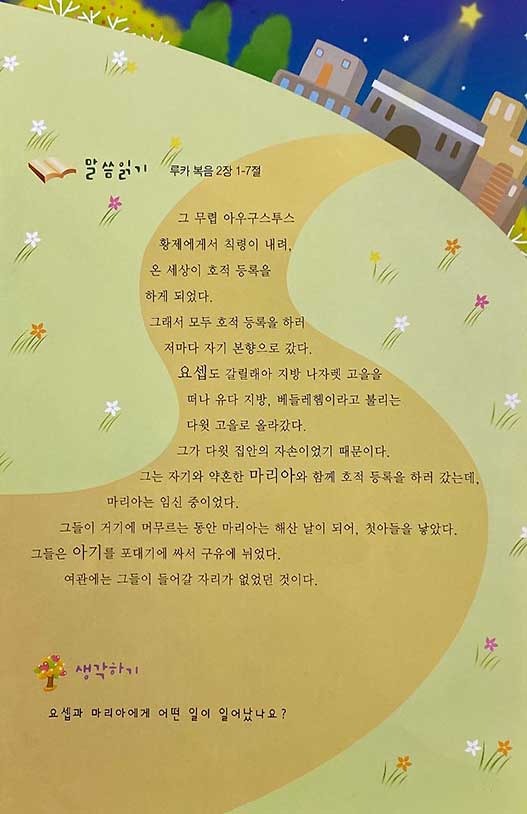 말씀읽기 루카 복음 2장 1-7절
그 무렵 아우구스투스
황제에게서 칙령이 내려,
온 세상이 호적 등록을
하게 되었다.
그래서 모두 호적 등록을 하러
저마다 자기 본향으로 갔다.
요셉도 갈릴래아 지방 나자렛 고을을
떠나 유다 지방, 베들레헴이라고 불리는
다윗 고을로 올라갔다.
그가 다윗 집안의 자손이었기 때문이다.
그는 자기와 약혼한 마리아와 함께 호적 등록을 하러 갔는데,
마리아는 임신 중이었다.
그들이 거기에 머무르는 동안 마리아는 해산 날이 되어, 첫아들을 낳았다.
그들은 아기를 포대기에 싸서 구유에 뉘었다.
여관에는 그들이 들어갈 자리가 없었던 것이다.
생각하기
요셉과 마리아에게 어떤 일이 일어났나요?